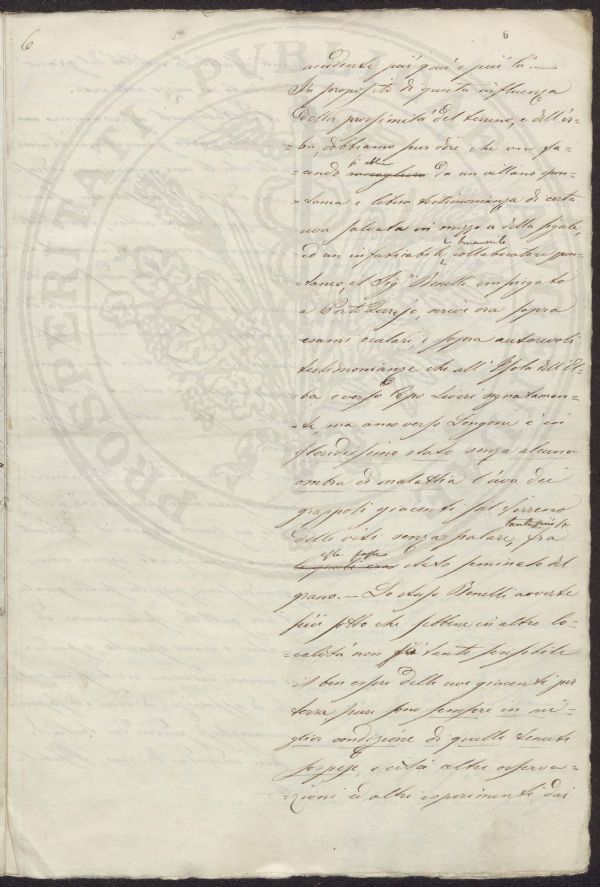 6
6
accidenti più quà e più là —
In proposito di questa influenza
della prossimità del terreno, e dell'er-
-ba, dobbiamo pur dire che viv fa-
-cendo da un villano spon-
-tanea e libera testimonianza di certa
uva salvata in mezzo a della segale,
ed un infaticabile e benemerito collaboratore spon-
-taneo, el Sig.r Benelli impiegato
a Porto Ferrajo, scrive ora sopra
esami oculari, e sopra autorevoli
testimonianze che all'Isola dell'El-
-ba e verso Capo Liveri segnatamen-
-te ma anco verso Longone è in
floridissimo stato senza alcuna
ombra di malattia l'uva dei
grappoli giacenti sul terreno
delle viti senza palare, tanto più se
fra
stato seminato del
grano. — Lo stesso Benelli avverte
più sotto che sebbene in altre lo-
-calità non sia tanto sensibile
il ben essere delle uve giacenti per
terra pure sono sempre in mi-
-glior condizione di quelle tenute
sospese, e cita altre osserva-
-zioni ed altri esperimenti dai
PROSPERITATI PUBLICAE